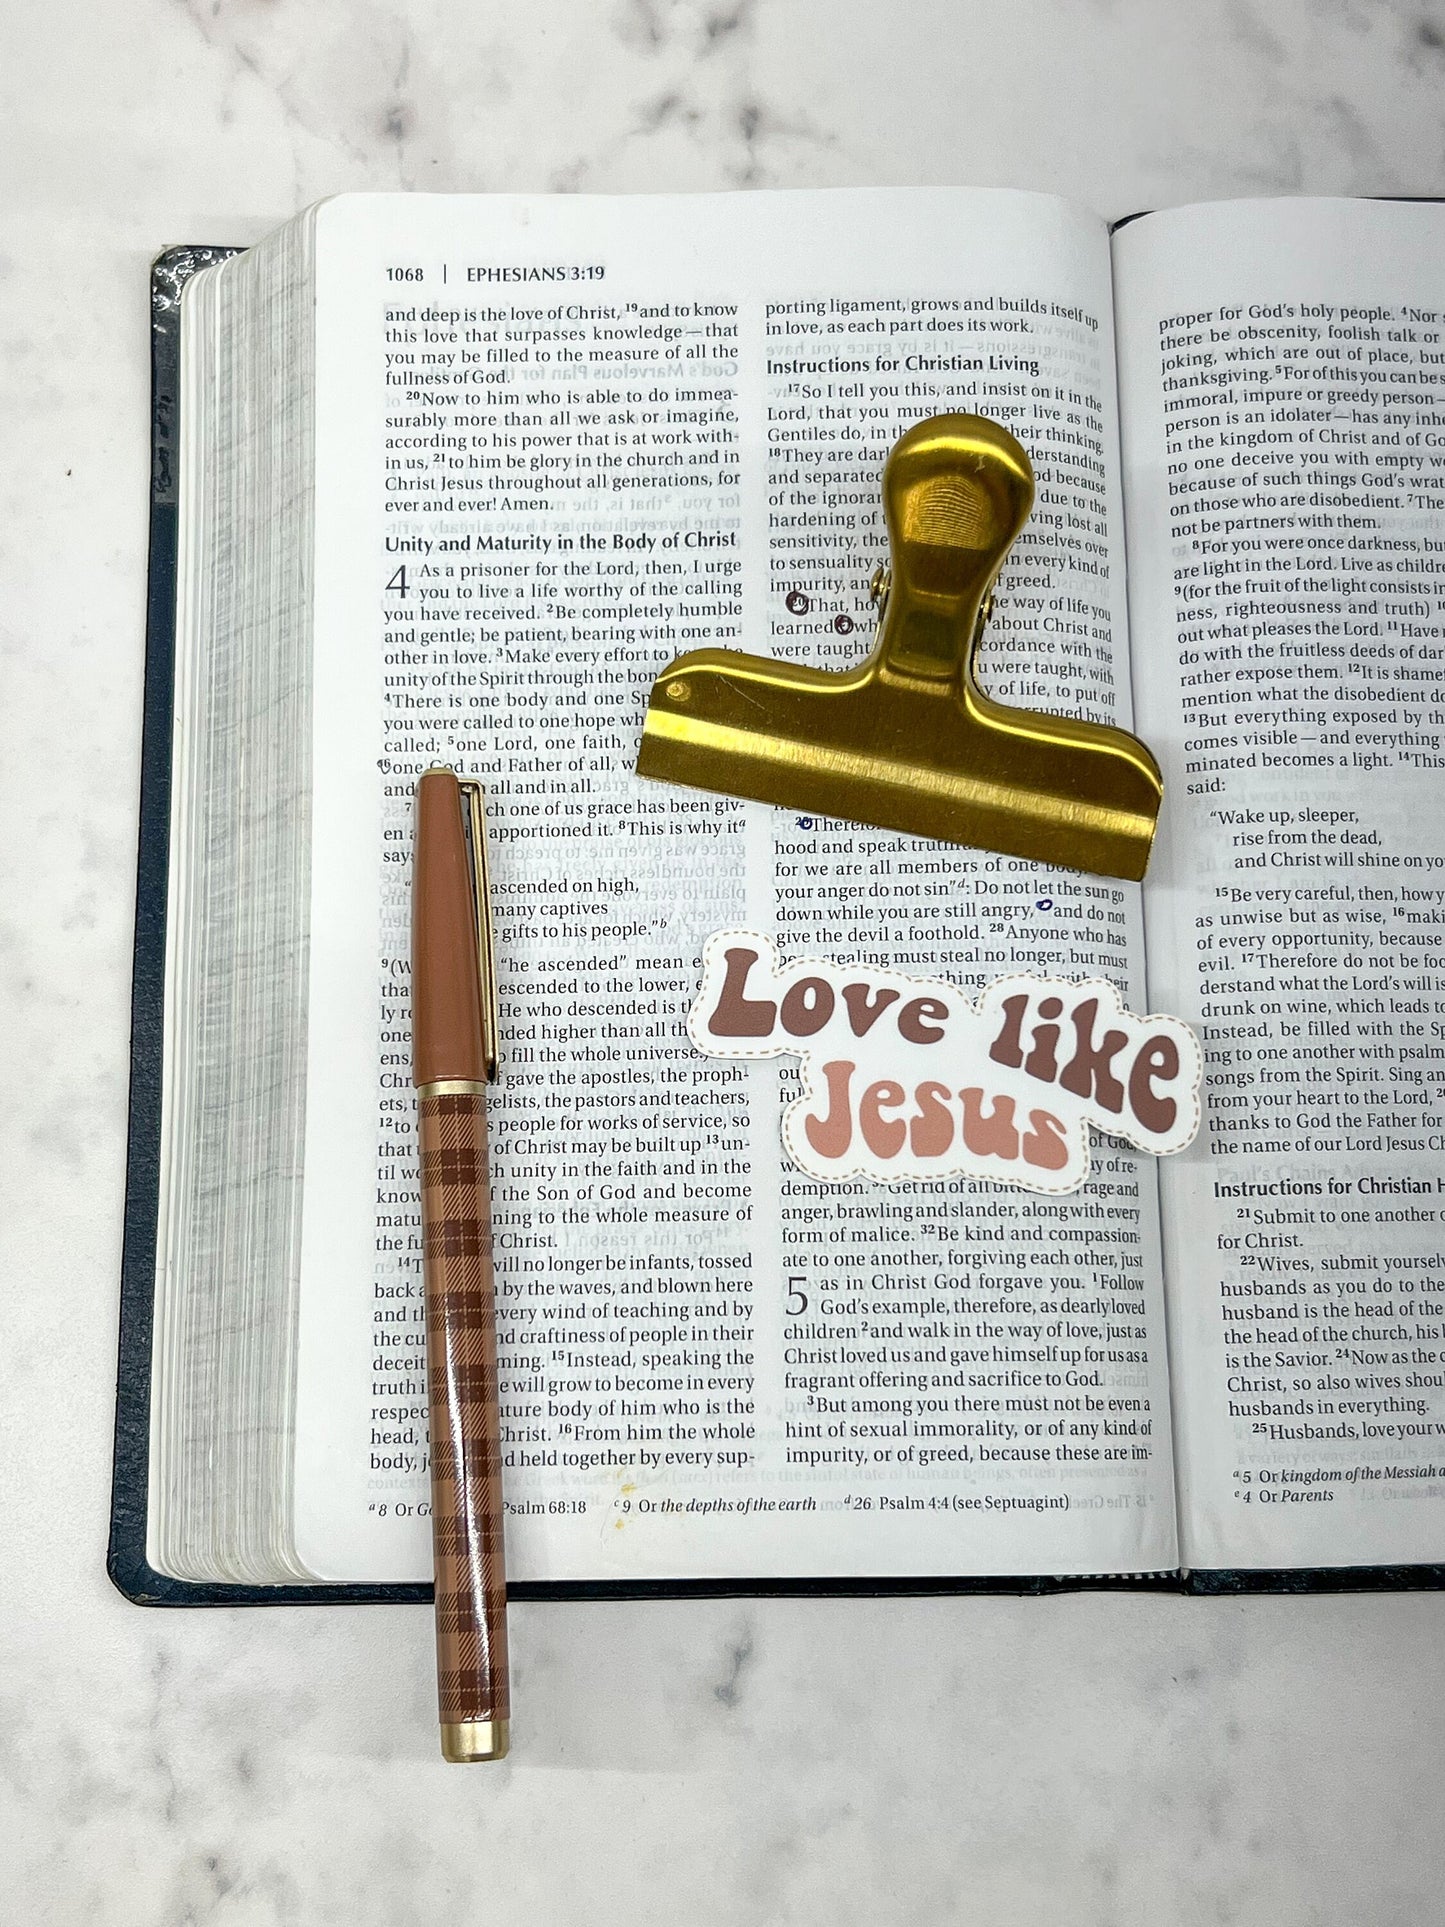 1068 | EPHESIANS 3:19
and deep is the love of Christ, 19and to know
this love that surpasses knowledge—that
you may be filled to the measure of all the
fullness of God.
20Now to him who is able to do immea-
surably more than all we ask or imagine,
according to his power that is at work with-
in us, 21to him be glory in the church and in
Christ Jesus throughout all generations, for
ever and ever! Amen.
Unity and Maturity in the Body of Christ
4 As a prisoner for the Lord, then, I urge
you to live a life worthy of the calling
you have received. 2Be completely humble
and gentle; be patient, bearing with one an-
other in love. 3Make every effort to
unity of the Spirit through the
4There is one body and one
you were called to one hope
called; 5one Lord, one faith,
6one God and Father of all,
and all and in all.
7 one of us grace has been giv-
en apportioned it. 8This is why ita
ascended on high,
many captives
gifts to his people."b
9 "he ascended" mean
to the lower,
He who descended is
higher than all
fill the whole universe.)
gave the apostles, the proph-
ets, the pastors and teachers,
12to people for works of service, so
that of Christ may be built up 13un-
til unity in the faith and in the
the Son of God and become
to the whole measure of
the Christ.
14 will no longer be infants, tossed
back by the waves, and blown here
and every wind of teaching and by
the craftiness of people in their
15Instead, speaking the
truth will grow to become in every
body of him who is the
head, Christ. 16From him the whole
body, held together by every sup-
a 8 Or Psalm 68:18 c 9 Or the depths of the earth d 26 Psalm 4:4 (see Septuagint)
porting ligament, grows and builds itself up
in love, as each part does its work.
Instructions for Christian Living
17So I tell you this, and insist on it in the
Lord, that you must no longer live as the
Gentiles do, in their thinking.
18They are
and separated because
of the due to the
hardening of lost all
sensitivity, over
to sensuality in every kind of
impurity, of greed.
20That, way of life you
learned about Christ and
were taught the
were taught, with
of life, to put off
by its
hood and speak
for we are all members of one
your anger do not sin"d: Do not let the sun go
down while you are still angry, and do not
give the devil a foothold. 28Anyone who has
stealing must steal no longer, but must
Love like
Jesus
of God,
of re-
demption. Get rid of all rage and
anger, brawling and slander, along with every
form of malice. 32Be kind and compassion-
ate to one another, forgiving each other, just
5 as in Christ God forgave you. 1Follow
God's example, therefore, as dearly loved
children 2and walk in the way of love, just as
Christ loved us and gave himself up for us as a
fragrant offering and sacrifice to God.
3But among you there must not be even a
hint of sexual immorality, or of any kind of
impurity, or of greed, because these are im-
proper for God's holy people. 4Nor
there be obscenity, foolish talk or
joking, which are out of place, but
thanksgiving. 5For of this you can be
immoral, impure or greedy person—
person is an idolater—has any
in the kingdom of Christ and of
no one deceive you with empty
because of such things God's
on those who are disobedient. 7
not be partners with them.
8For you were once darkness, but
are light in the Lord. Live as
9(for the fruit of the light consists in
ness, righteousness and truth) 10
out what pleases the Lord. 11Have
do with the fruitless deeds of
rather expose them. 12It is
mention what the disobedient
13But everything exposed by
comes visible—and everything
minated becomes a light. 14This
said:
"Wake up, sleeper,
rise from the dead,
and Christ will shine on
15Be very careful, then, how
as unwise but as wise, 16
of every opportunity, because
evil. 17Therefore do not be
derstand what the Lord's will is
drunk on wine, which leads to
Instead, be filled with the
ing to one another with
songs from the Spirit. Sing
from your heart to the Lord,
thanks to God the Father for
the name of our Lord Jesus
Instructions for Christian
21Submit to one another
for Christ.
22Wives, submit
husbands as you do to the
husband is the head of the
the head of the church, his
is the Savior. 24Now as the
Christ, so also wives
husbands in everything.
25Husbands, love your
a 5 Or kingdom of the Messiah
e 4 Or Parents